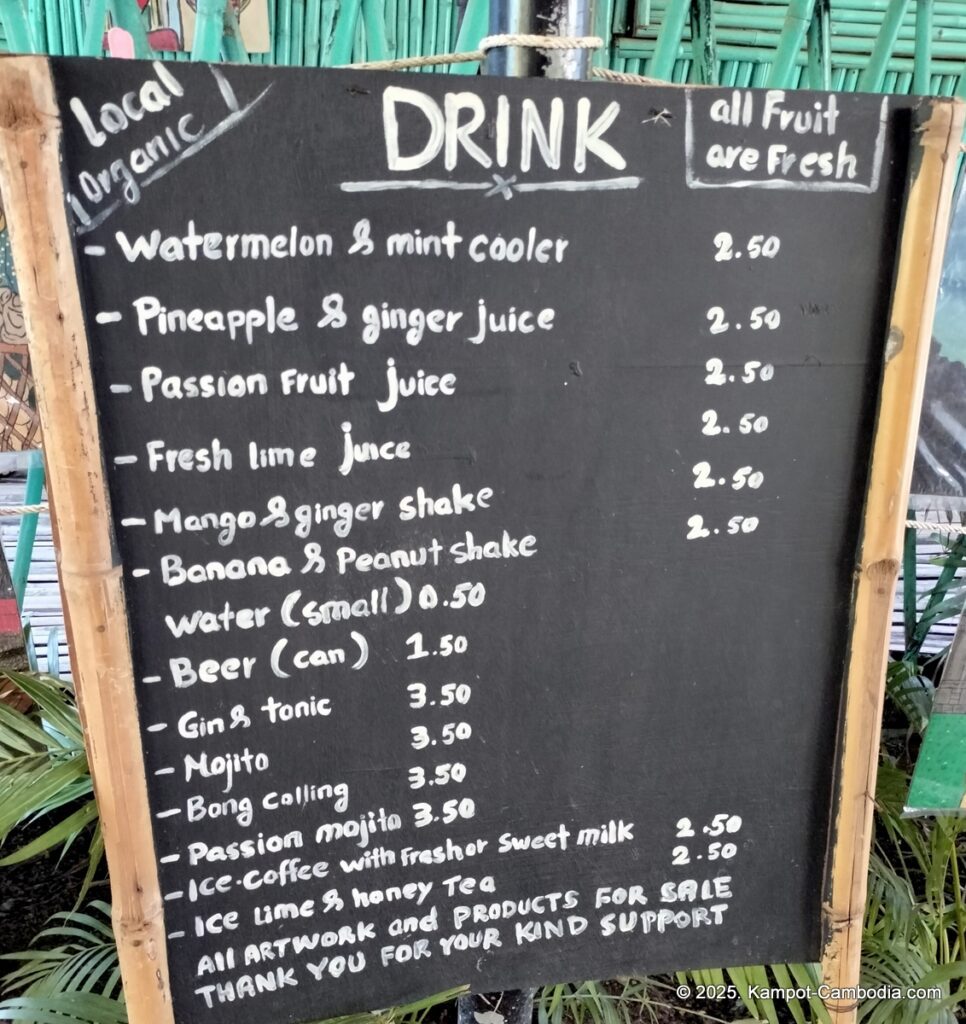 Local
Organic
DRINK
all Fruit
are Fresh
- Watermelon & mint cooler 2.50
- Pineapple & ginger juice 2.50
- Passion Fruit juice 2.50
- Fresh lime juice 2.50
- Mango & ginger shake 2.50
- Banana & Peanut shake 2.50
water (small) 0.50
- Beer (can) 1.50
- Gin & tonic 3.50
- Mojito 3.50
- Bong calling 3.50
- Passion mojito 3.50
- Ice-coffee with Fresh or sweet milk 2.50
- Ice lime & honey Tea 2.50
All ARTWORK and PRODUCTS FOR SALE
THANK YOU FOR YOUR KIND SUPPORT
© 2025. Kampot-Cambodia.com